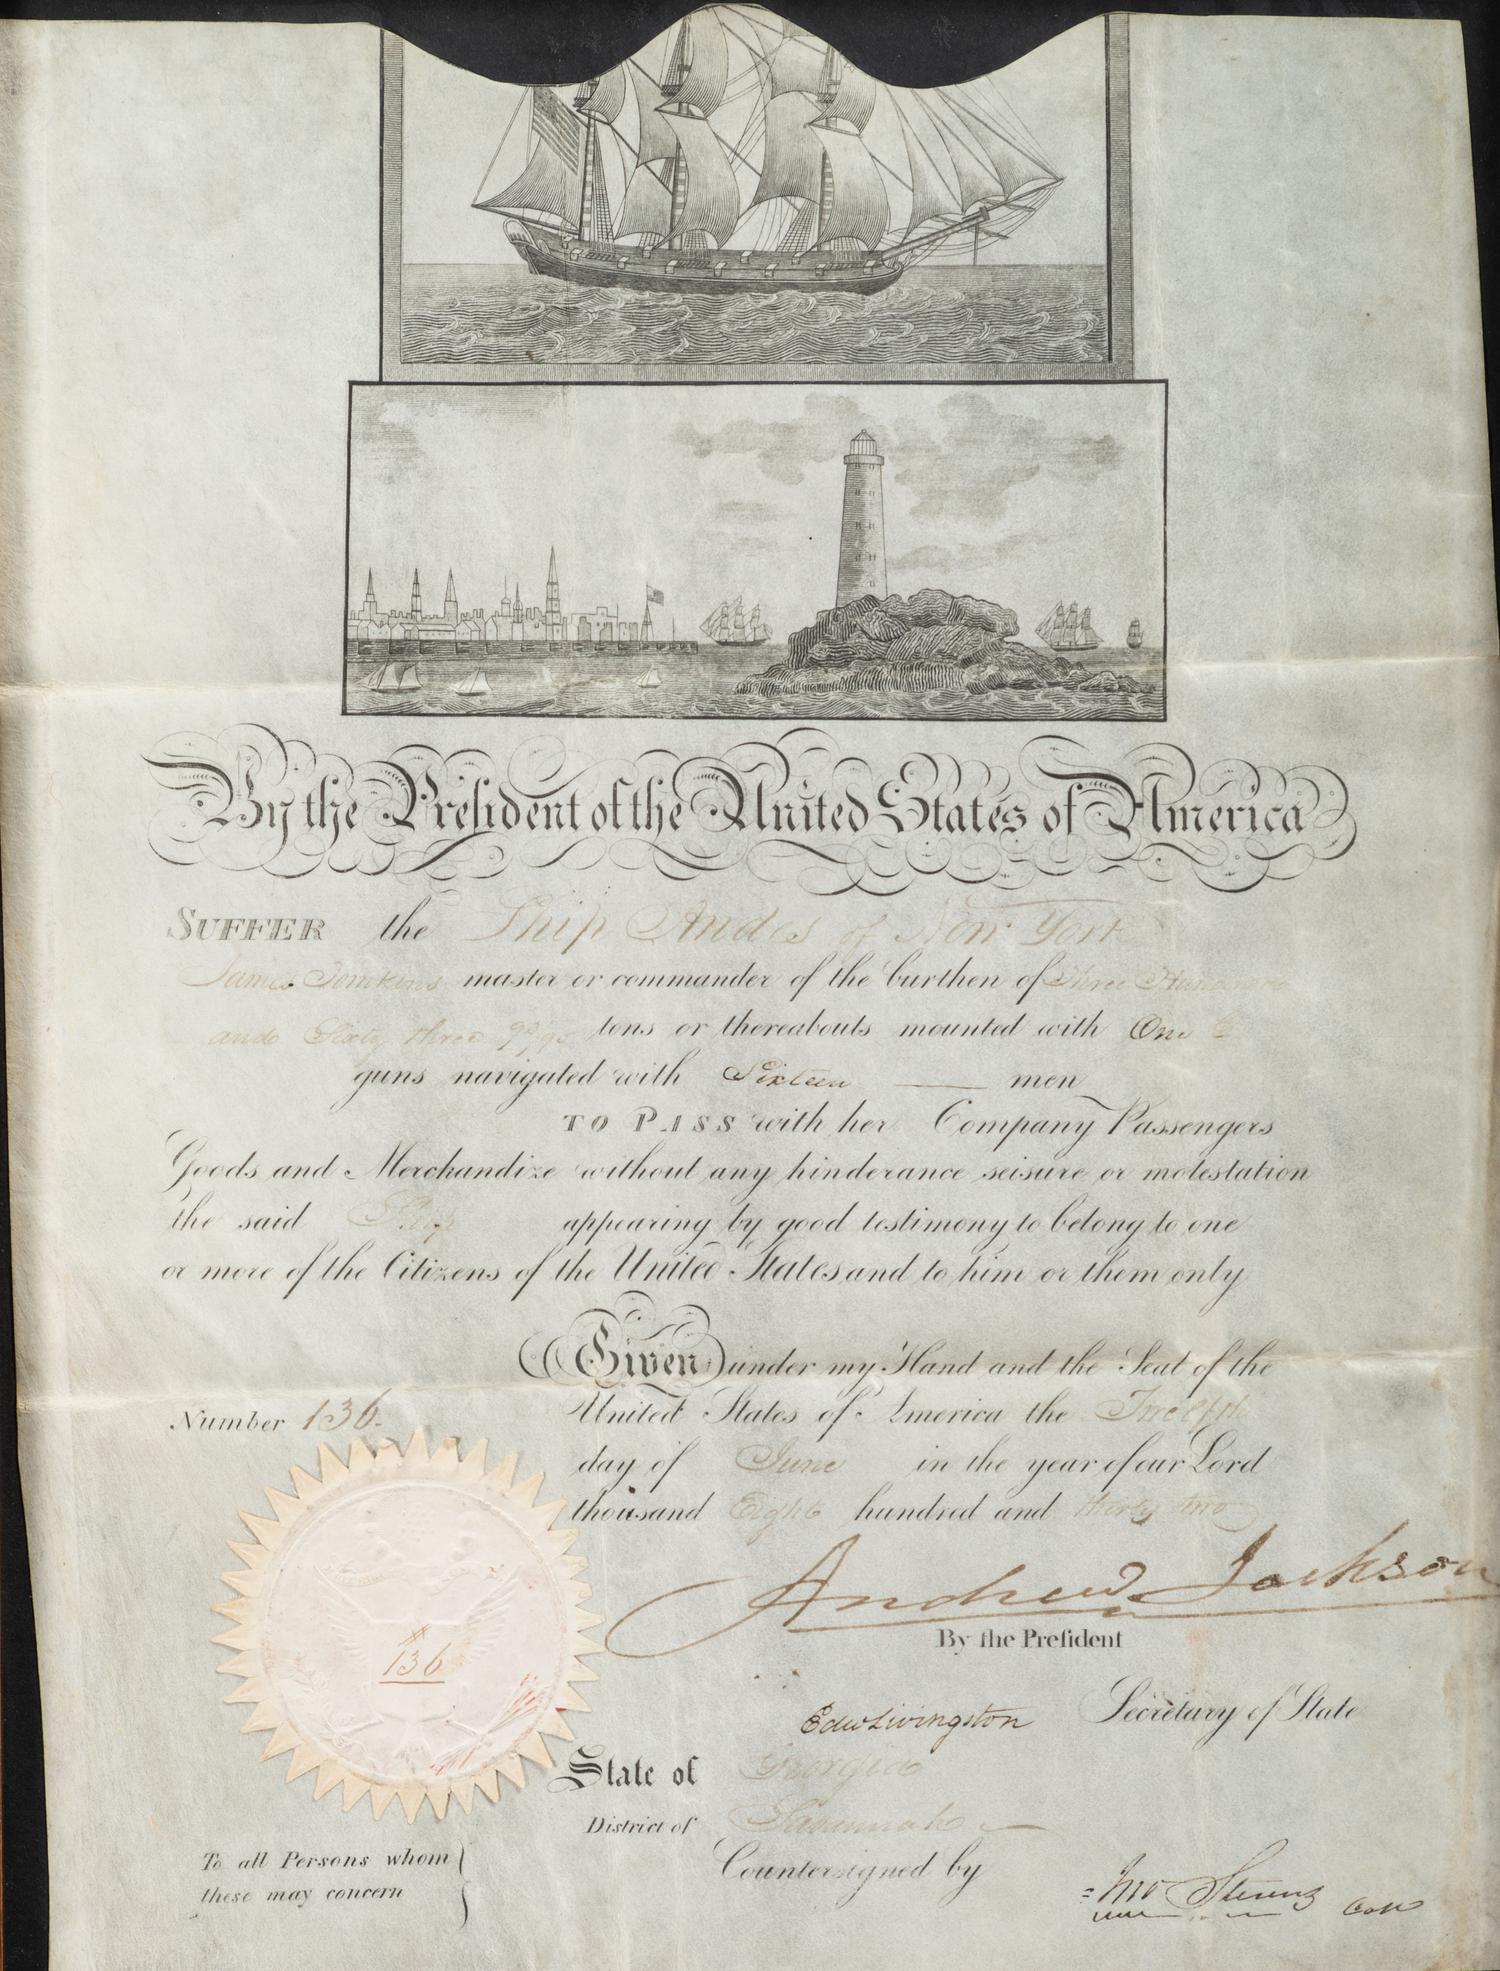 By the President of the United States of America
SUFFER the Ship Andes of New York
James Tomkins master or commander of the burthen of Three Hundred
and Sixty three 92/95 tons or thereabouts mounted with One
guns navigated with Sixteen — men
TO PASS with her Company Passengers
Goods and Merchandize without any hinderance seisure or molestation
the said Ship appearing by good testimony to belong to one
or more of the Citizens of the United States and to him or them only
Given under my Hand and the Seal of the
United States of America the Twelfth
day of June in the year of our Lord
thousand Eight hundred and thirty two
Number 136.
# 136
Andrew Jackson
By the President
Edw Livingston Secretary of State
State of Georgia
District of Savannah
Countersigned by
Jno Stevens Coll
To all Persons whom
these may concern